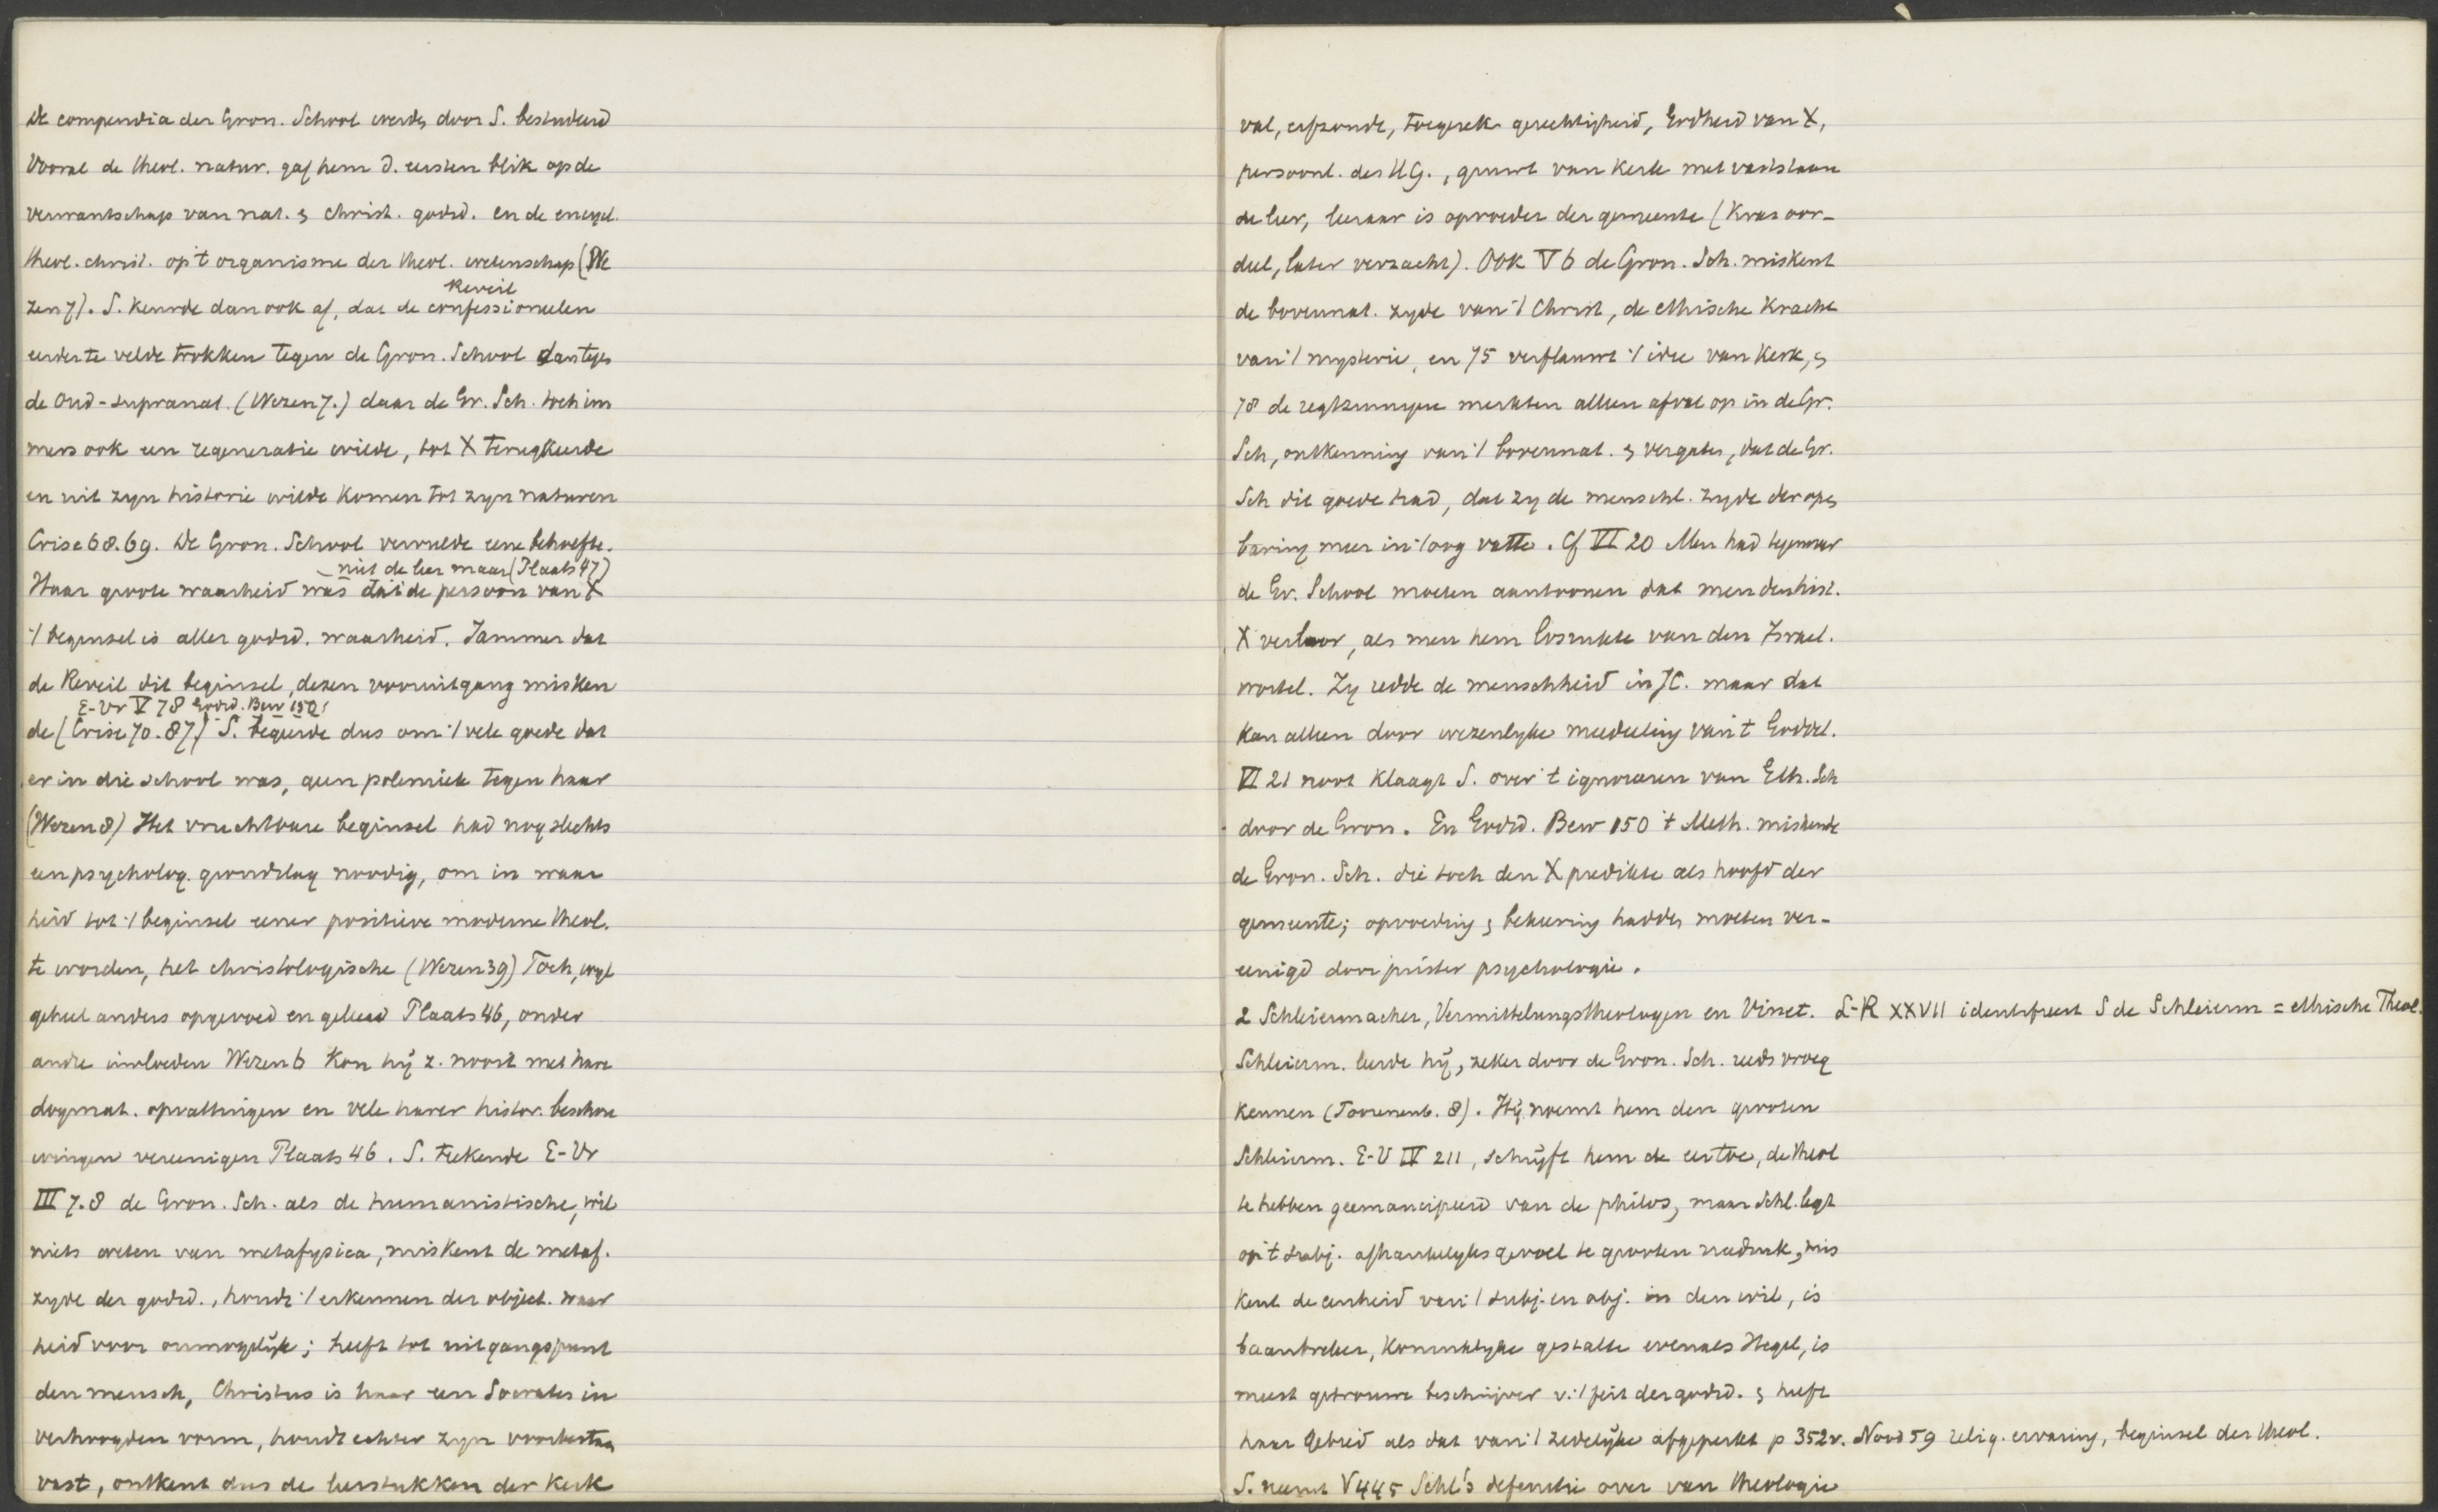 De compendia der Gron. School werden door S. bestudeerd
Vooral de theol. natur. gaf hem d. eersten blik op de
verwantschap van nat. & christ. godsd. en de encycl.
theol. christ. op 't organisme der theol. wetenschap (We
zen 7). S. keurde dan ook af, dat de confessioneelen
Reveil
eerder te velde trokken tegen de Gron. School dan tegen
de Oud-supranat. (Wezen 7.) daar de Gr. Sch. toch im
mers ook een regeneratie wilde, tot X terugkeerde
en uit zyn historie wilde komen tot zyn naturen
Crise 68.69. De Gron. School vervulde eene behoefte.
niet de leer maar (Plaats 47)
Haar groote waarheid was dat de persoon van X
't beginsel is aller godsd. waarheid. Jammer dat
de Reveil dit beginsel, dezen vooruitgang misken
E-Vr V 78 Godsd. Bew 150
de (Crise 70.87) S. begeerde dus om 't vele goede dat
er in die school was, geen polemiek tegen haar
(Wezen 8) Het vruchtbare beginsel had nog slechts
een psycholog. grondslag noodig, om in waar
heid tot 't beginsel eener positieve moderne theol.
te worden, het christologische (Wezen 39) Toch, wyl
geheel anders opgevoed en geleid Plaats 46, onder
andre invloeden Wezen 6 kon hij z. nooit met hare
dogmat. opvattingen en vele harer histor. beschou
wingen vereenigen Plaats 46. S. teekende E-Vr
III 7.8 de Gron. Sch. als de humanistische, wil
niets weten van metafysica, miskent de metaf.
zyde der godsd., houdt 't erkennen der object. waar
heid voor onmogelijk; heeft tot uitgangspunt
den mensch, Christus is haar een Socrates in
verhoogden vorm, houdt echter zyn voorbestaan
vast, ontkent dus de leerstukken der Kerk
val, erfzonde, toegerek. gerechtigheid, Godheid van X,
persoonl. des HG., gruwt van kerk met vaststaan
de leer, leeraar is opvoeder der gemeente (Kras oor-
deel, later verzacht). Ook V 6 de Gron. Sch. miskent
de bovennat. zyde van 't Christ, de ethische kracht
van 't mysterie, en 75 verflauwt 't idee van Kerk, &
78 de regtzinnigen merkten alleen afval op in de Gr.
Sch, ontkenning van 't bovennat. & vergaten, dat de Gr.
Sch dit goede had, dat zy de menschl. zyde der open
baring meer in 't oog vatte. Cf VI 20 Men had tegenover
de Gr. School moeten aantoonen dat men den hist.
X verloor, als men hem losrukte van den Israel.
wortel. Zy redde de menschheid in JC. maar dat
kan alleen door wezenlyke mededeeling van 't Godd.
VI 21 noot klaagt S. over 't ignoreeren van Eth. Sch
door de Gron. En Godsd. Bew 150 't Meth. miskende
de Gron. Sch. die toch den X predikte als hoofd der
gemeente; opvoeding & bekeering hadden moeten ver-
eenigd door juister psychologie.
2 Schleiermacher, Vermittelungstheologen en Vinet. L-R XXVII identifieert S de Schleierm = ethische Theol.
Schleierm. leerde hij, zeker door de Gron. Sch. reeds vroeg
kennen (Toorenenb. 8). Hij noemt hem den grooten
Schleierm. E-V IV 211, schrijft hem de eer toe, de theol
te hebben geemancipeerd van de philos, maar Schl. legt
op 't subj. afhankelykheidsgevoel te grooten nadruk, mis
kent de eenheid van 't subj. en obj. in den wil, is
baanbreker, Koninklyke gestalte evenals Hegel, is
meest getrouwe beschrijver v. 't feit der godsd. & heeft
haar gebied als dat van 't zedelijke afgeperkt p 352v. Nood 59 relig. ervaring, beginsel der theol.
S. neemt V 445 Schl's definitie over van theologie